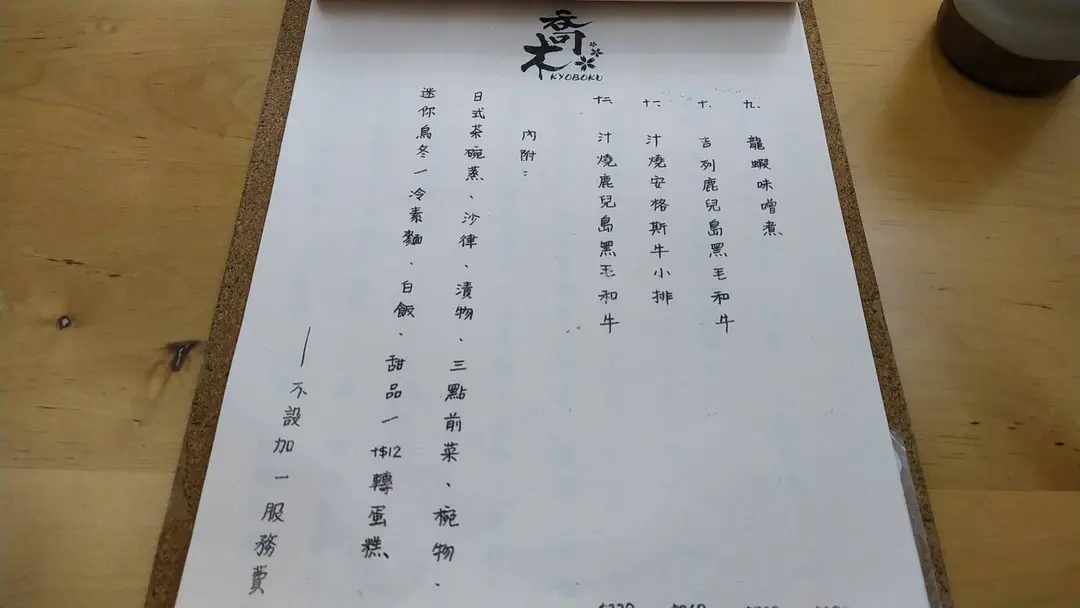 喬木
KYOBOKU
九、龍蝦味噌煮
十、吉列鹿兒島黑毛和牛
十一、汁燒安格斯牛小排
十二、汁燒鹿兒島黑毛和牛
內附：
日式茶碗蒸、沙律、漬物、三點前菜、椀物、
迷你烏冬/冷素麵、白飯、甜品/+$12轉蛋糕
—不設加一服務費